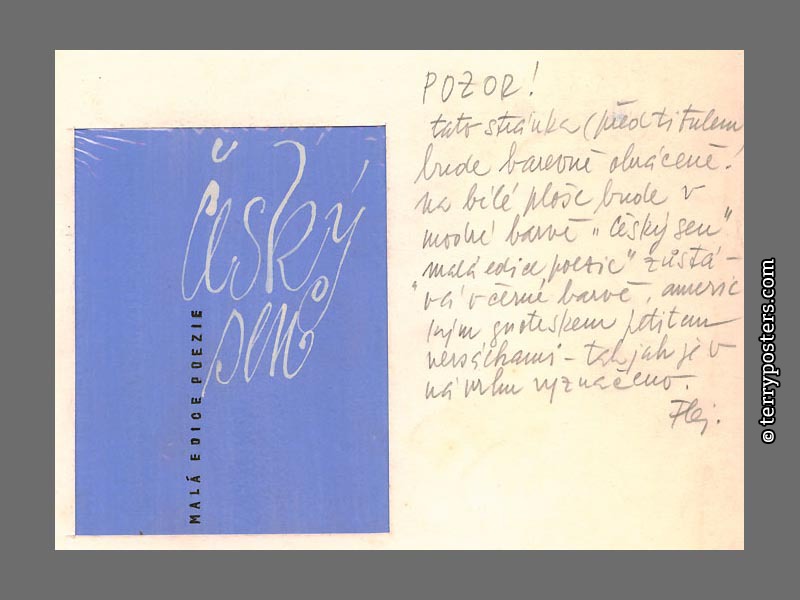 český
sen
MALÁ EDICE POEZIE
POZOR!
tato stránka (předtitulem
bude barevně obráceně!
na bílé ploše bude v
modré barvě „český sen"
"malá edice poezie" zůstá-
vá v černé barvě, americ
kým groteskem petitem
versálkami – tak jak je v
návrhu vyznačeno.
Flej.
© terryposters.com